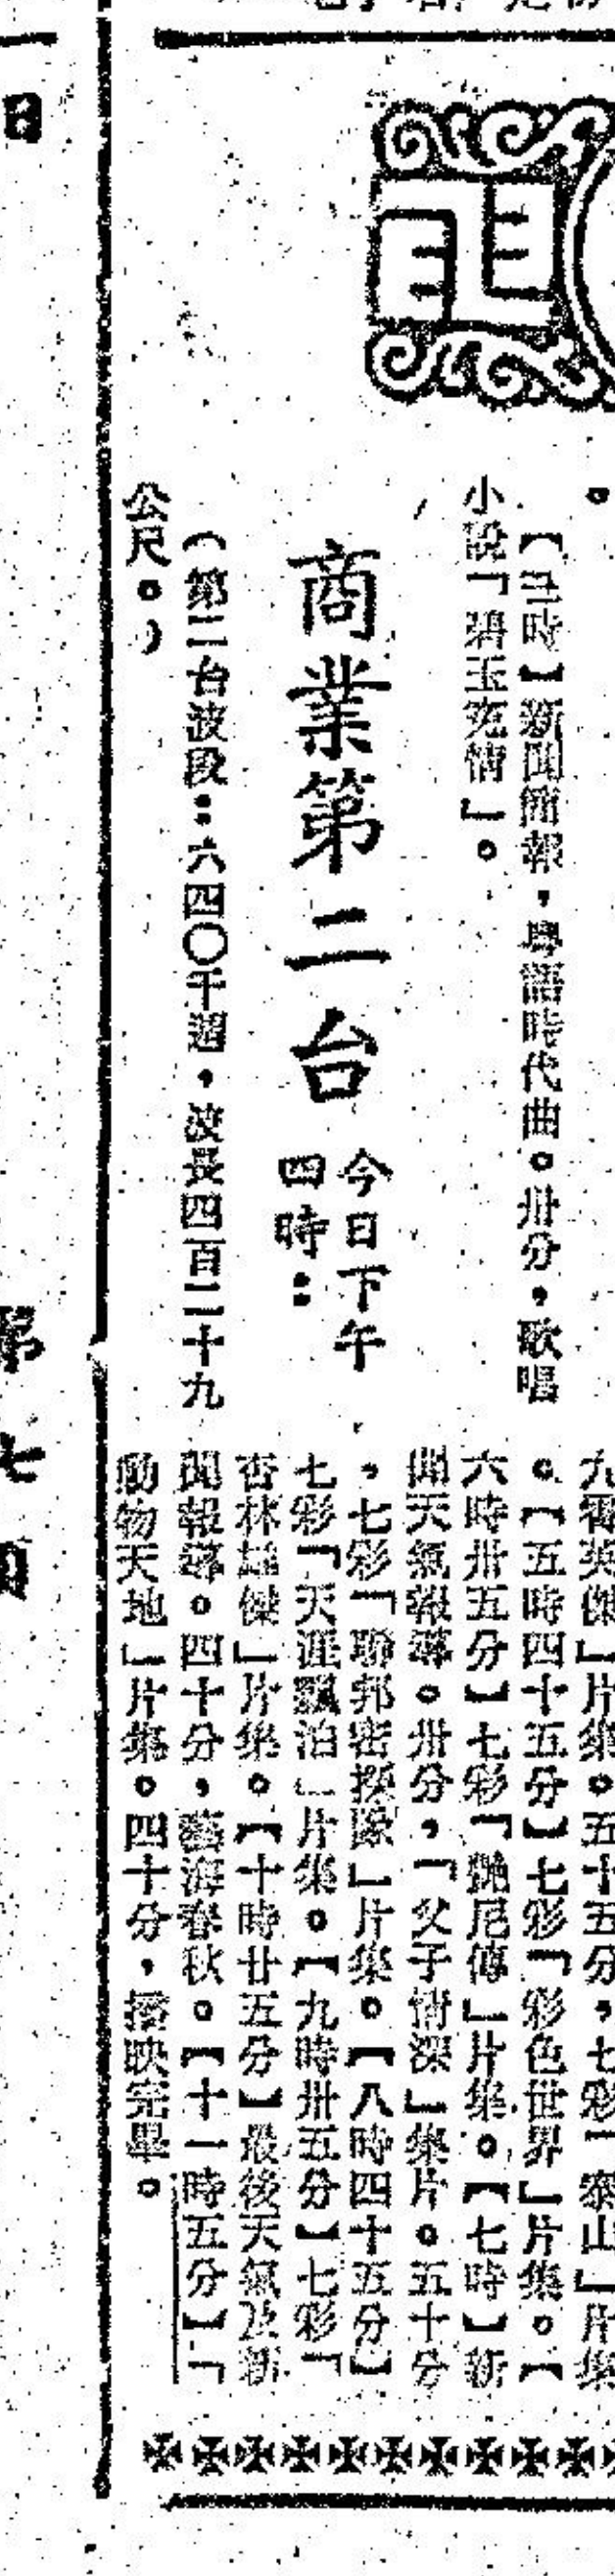 。
【三時】新聞簡報，粵語時代曲。卅分，歌唱
小說「碧玉寃情」。
商業第二台
今日下午
四時：
（第二台波段：六四〇千週，波長四百二十九
公尺。）
九霄英傑」片集。五十五分，七彩「泰山」片集
。【五時四十五分】七彩「彩色世界」片集。【
六時卅五分】七彩「艷尼傳」片集。【七時】新
聞天氣報導。卅分，「父子情深」集片。五十分
，七彩「聯邦密探隊」片集。【八時四十五分】
七彩「天涯飄泊」片集。【九時卅五分】七彩「
杏林雄傑」片集。【十時廿五分】最後天氣及新
聞報導。四十分，藝海春秋。【十一時五分】「
動物天地」片集。四十分，播映完畢。
日
第七頁